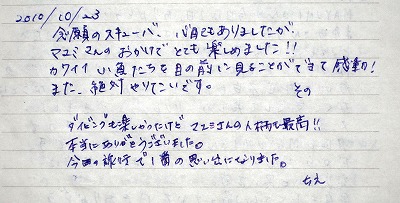 2010/10/23
念願のスキューバ、心配でもありましたが
マユミさんのおかげでとても楽しめました!!
カワイイい魚たちを目の前に見ることができて感動!
また、絶対やりたいです。 その
ダイビングも楽しかったけどマユミさんの人柄も最高!!
本当にありがとうございました。
今回の旅行で1番の思い出になりました。
ちえ